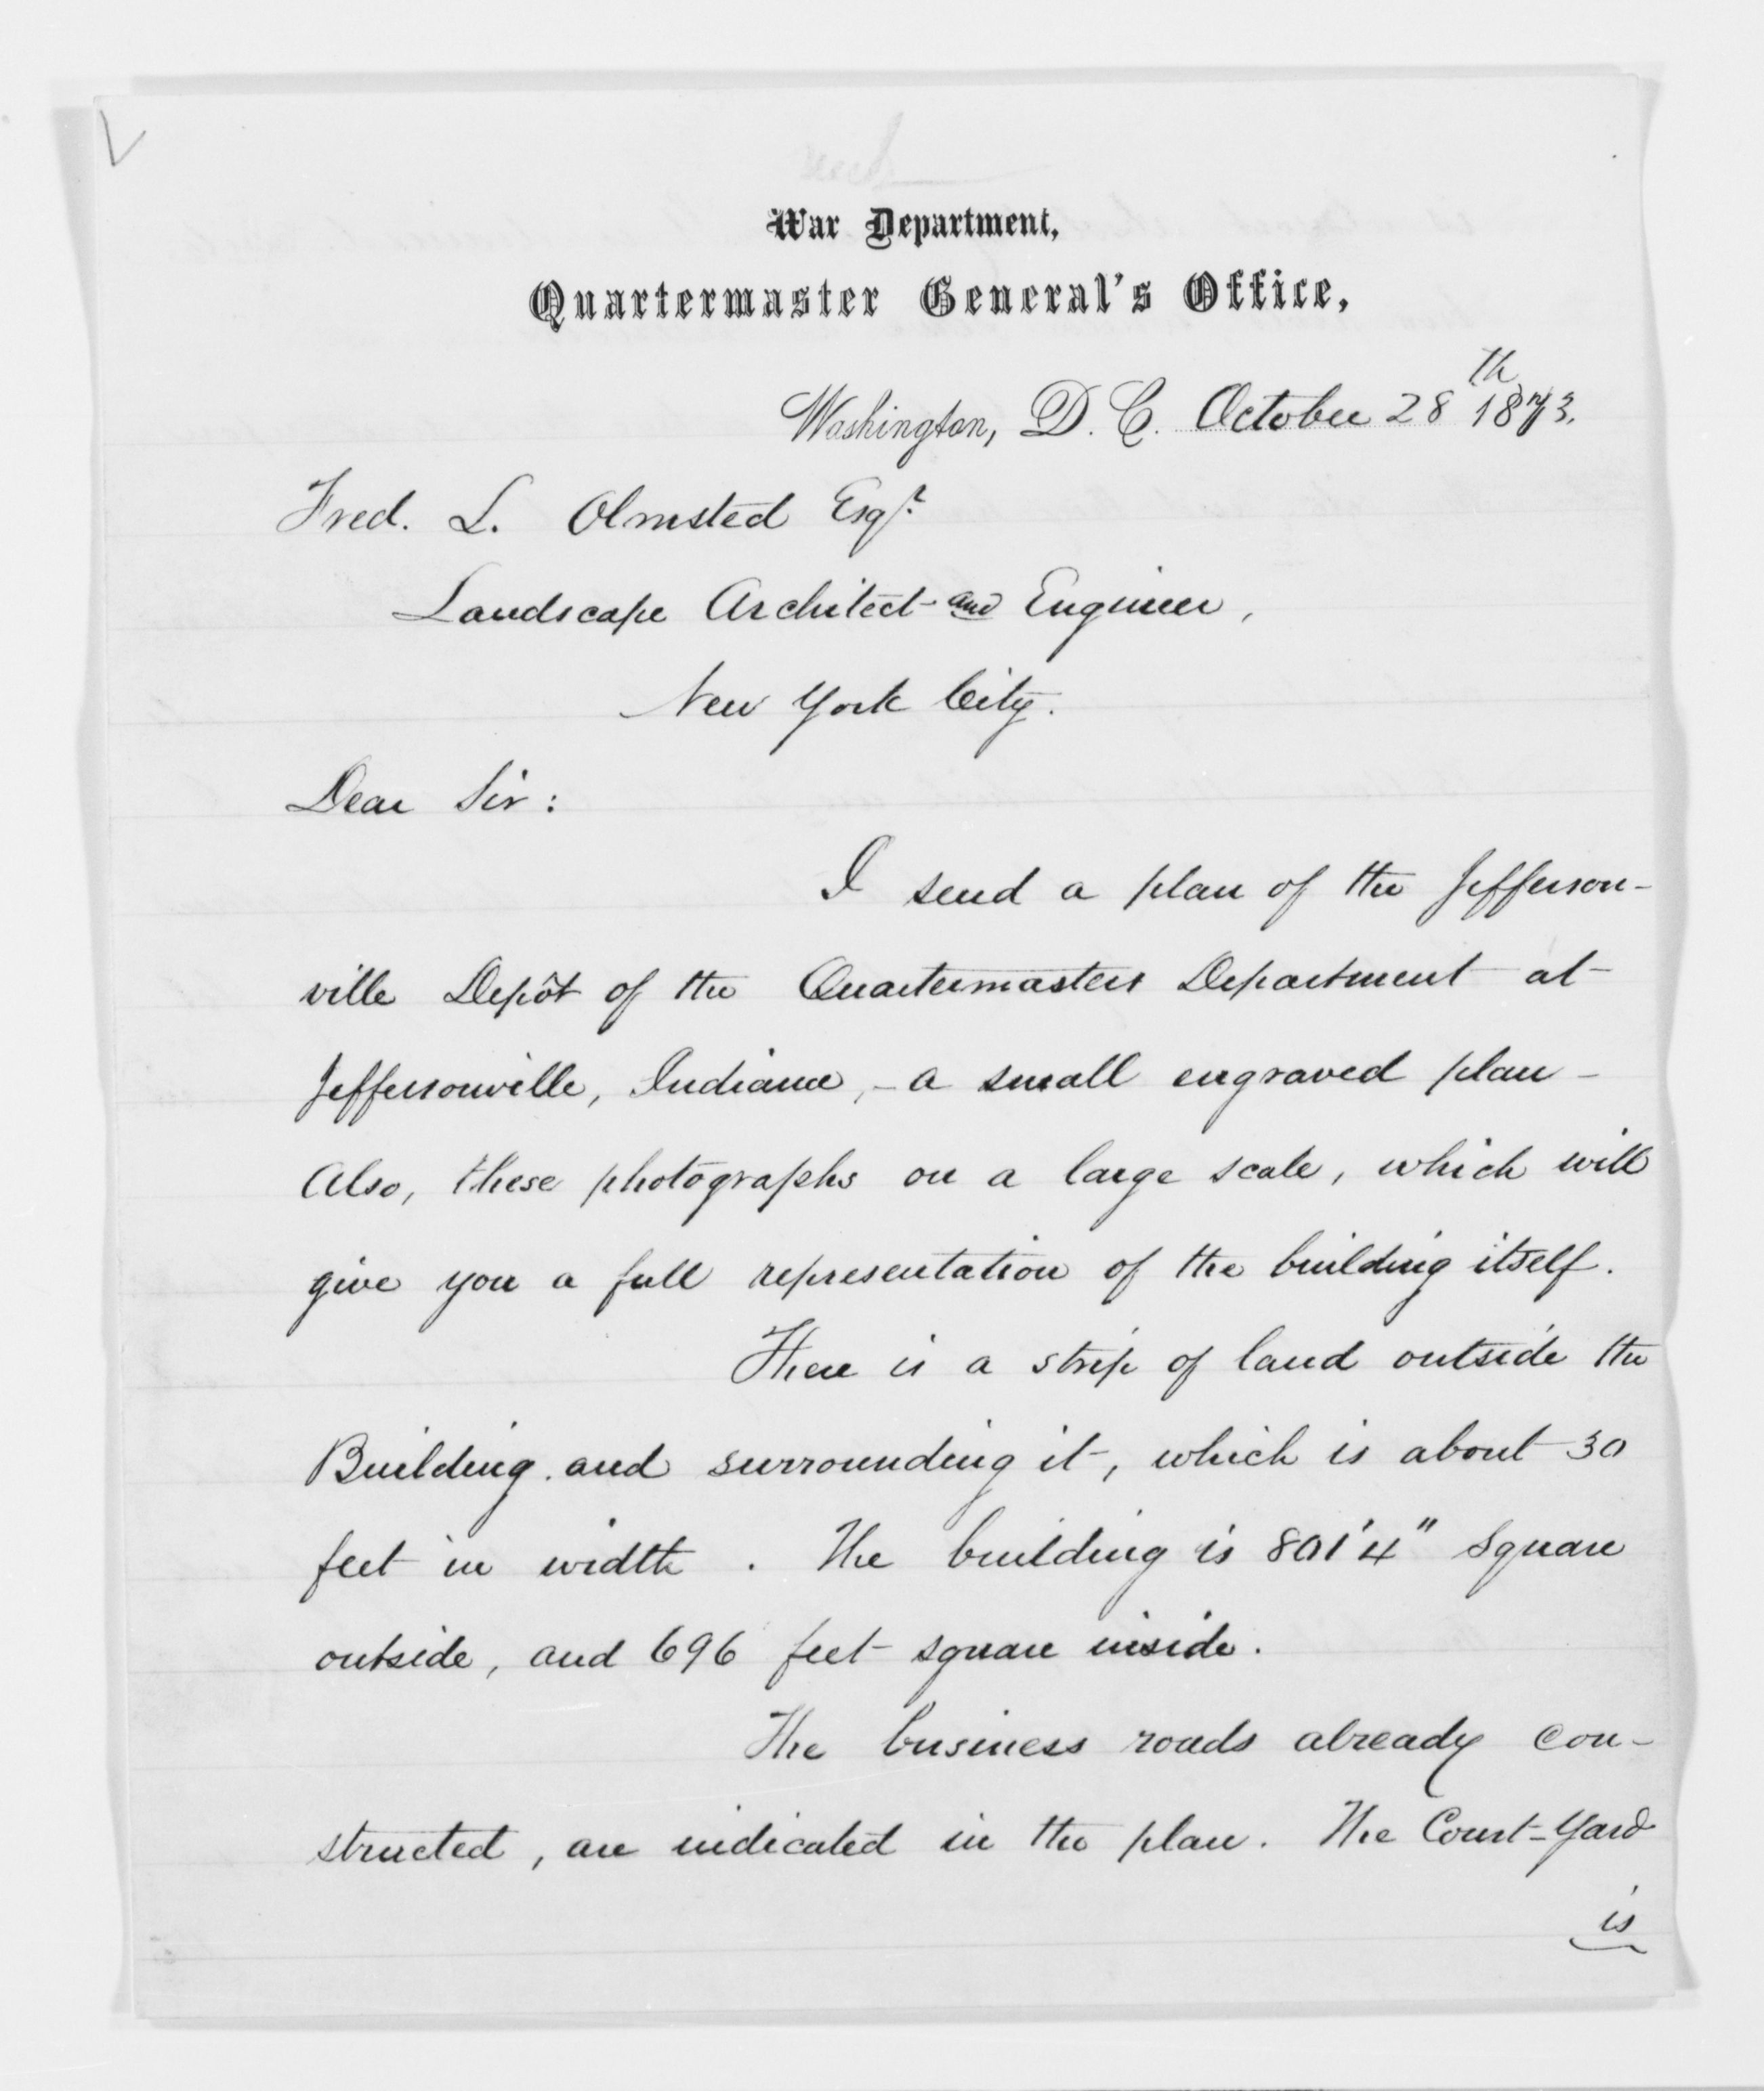 War Department,
Quartermaster General's Office,
Washington, D. C. October 28th 1873.
Fred. L. Olmsted Esqr.
Landscape Architect and Engineer,
New York City.
Dear Sir:
I send a plan of the Jefferson-
ville Depôt of the Quartermasters Department at
Jeffersonville, Indiana, - a small engraved plan -
Also, these photographs on a large scale, which will
give you a full representation of the building itself.
There is a strip of land outside the
Building and surrounding it, which is about 30
feet in width. The building is 801'4" square
outside, and 696 feet square inside.
The business roads already con-
structed, are indicated in the plan. The Court-Yard
is